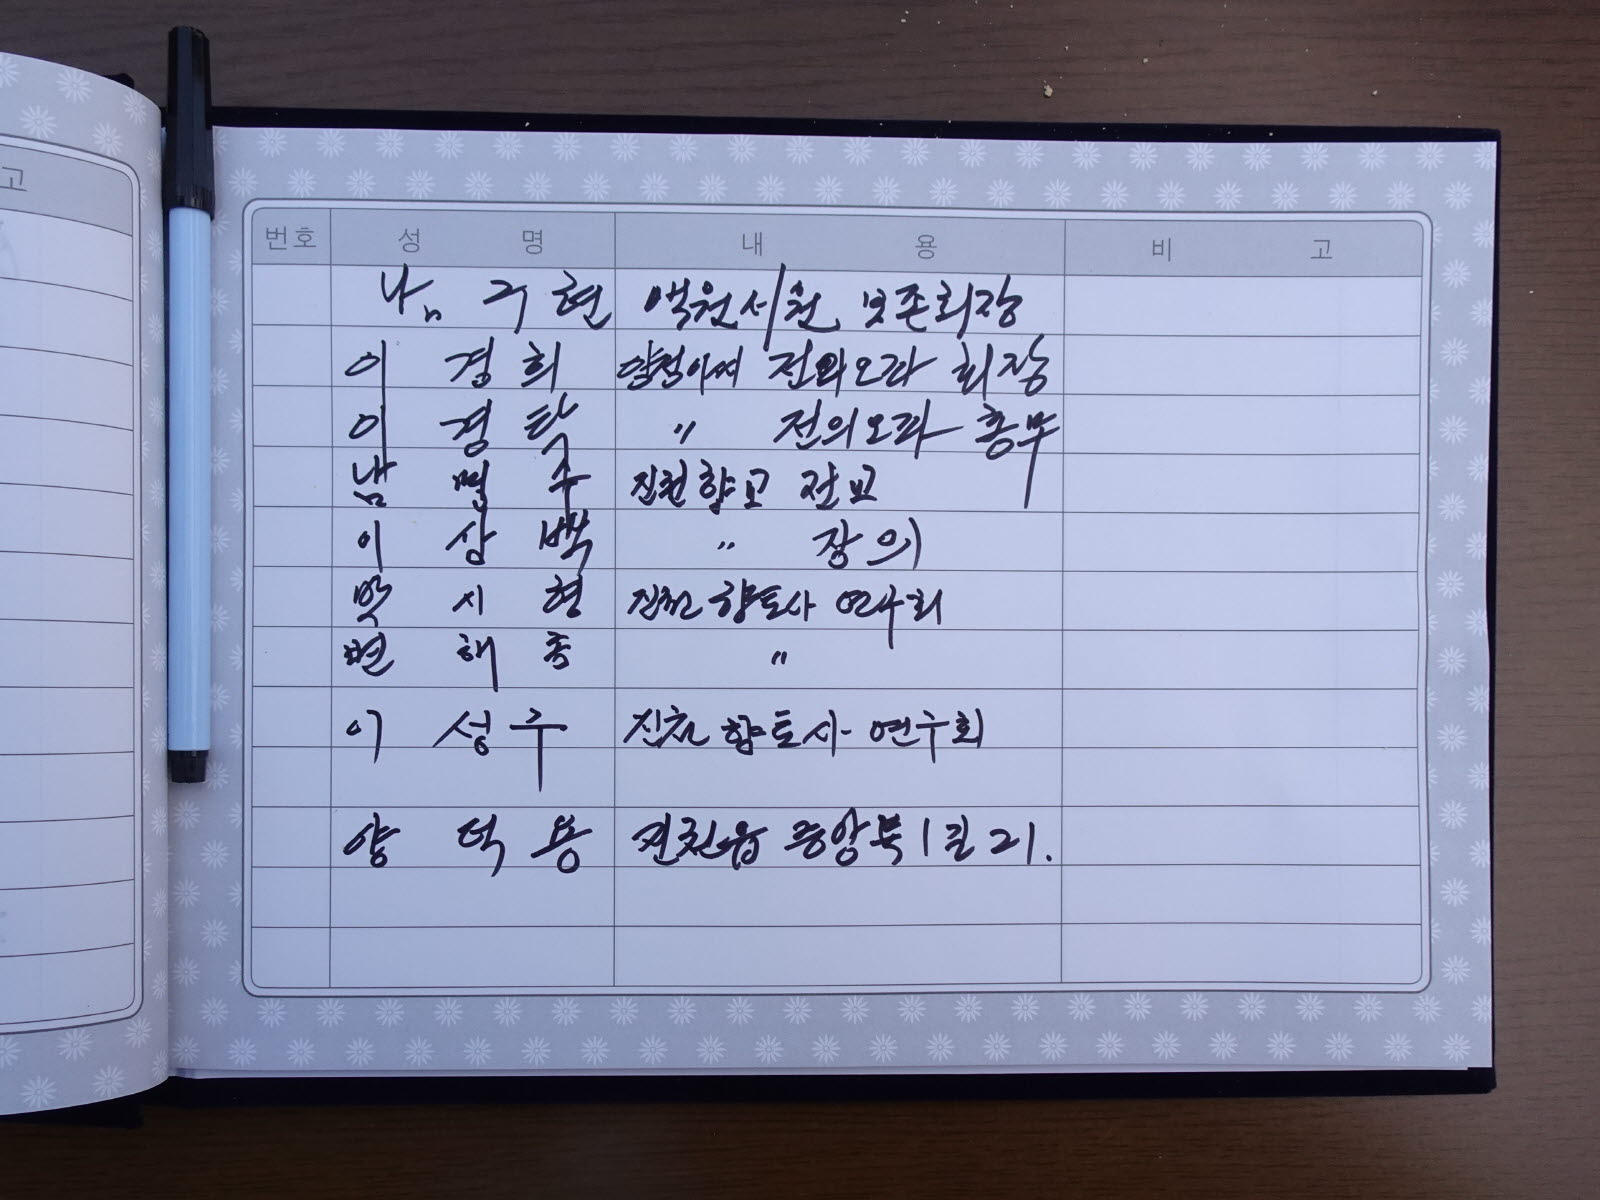 고
번호 성 명 내 용 비 고
남 구현 서원 보존회장
이 경희 회장
이 경탁 〃 전의오라 총무
남 명수 진천향교 전교
이 상백 〃 장의
시현 진천 향토사 연구회
변 해종 〃
이 성우 진천 향토사 연구회
양 덕용 진천읍 중앙북1길 21.